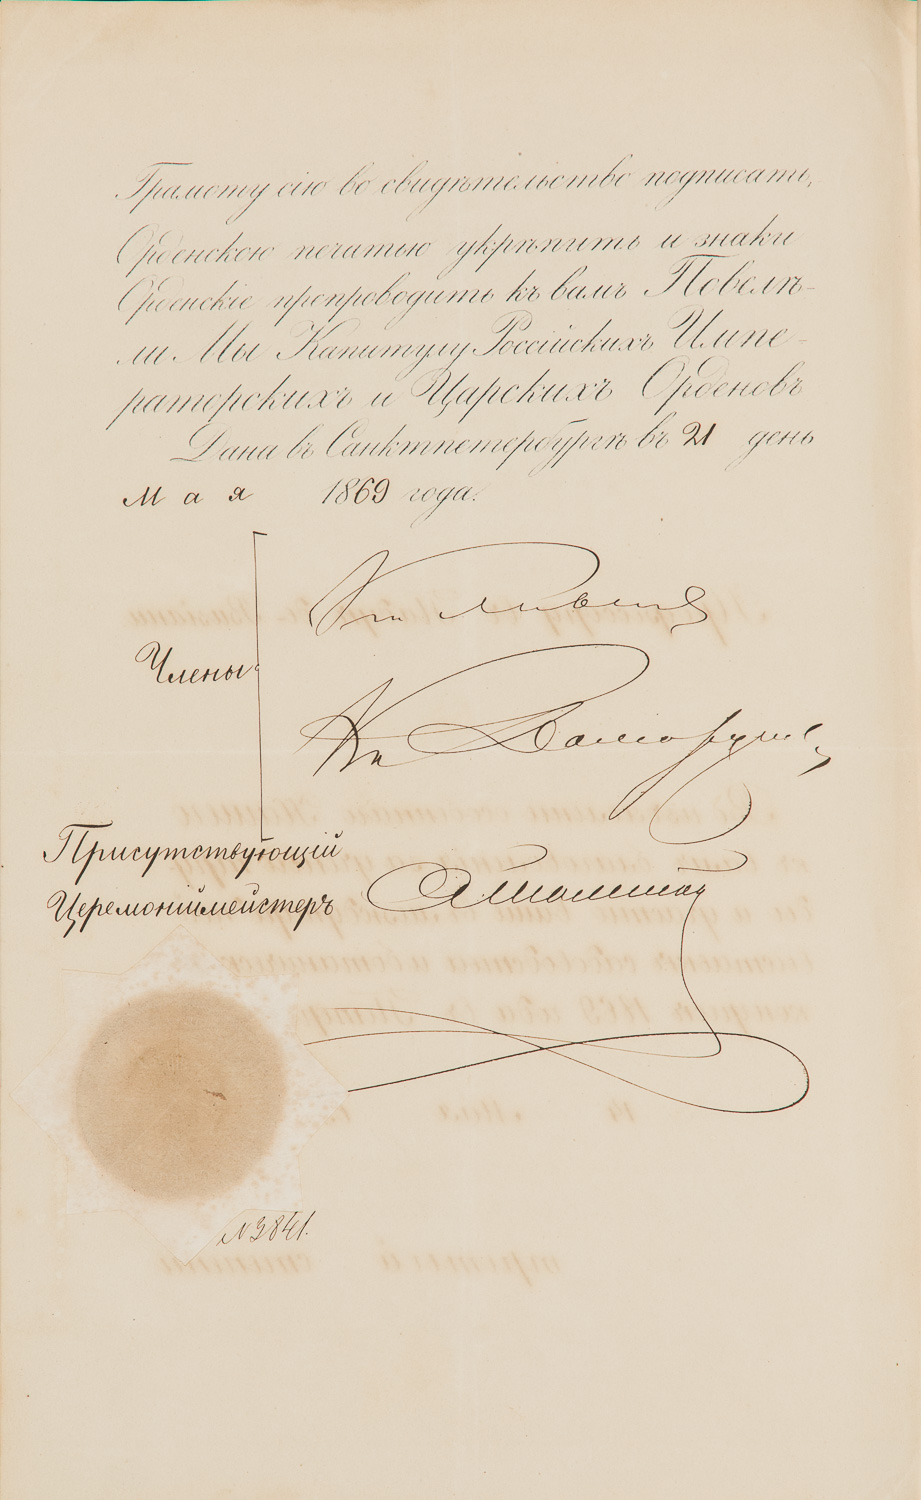 Грамоту сію во свидѣтельство подписать,
Орденскою печатью укрѣпить и знаки
Орденскіе препроводить къ вамъ Повелѣ-
ли Мы Капитулу Россійскихъ Импе-
раторскихъ и Царскихъ Орденовъ
Дана въ Санктпетербургѣ въ 21 день
Мая 1869 года.
Члены
Присутствующій
Церемоніймейстеръ
№ 3841.